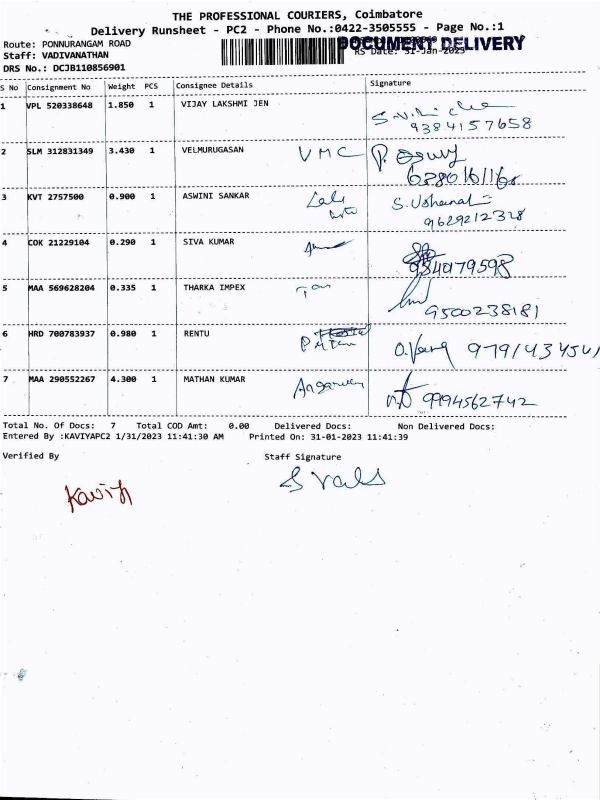 THE PROFESSIONAL COURIERS, Coimbatore
Delivery Runsheet - PC2 - Phone No.:0422-3505555 - Page No.:1
Route: PONNURANGAM ROAD
DOCUMENT DELIVERY
Staff: VADIVANATHAN
RS Date: 31-Jan-2023
DRS No.: DCJB110856901
S No Consignment No Weight PCS Consignee Details Signature
1 VPL 520338648 1.850 1 VIJAY LAKSHMI JEN
9384157658
2 SLM 312831349 3.430 1 VELMURUGASAN VMC P.
3 KVT 2757500 0.900 1 ASWINI SANKAR S.
9629212328
4 COK 21229104 0.290 1 SIVA KUMAR
9340179598
5 MAA 569628204 0.335 1 THARKA IMPEX
9500238181
6 HRD 700783937 0.980 1 RENTU
7 MAA 290552267 4.300 1 MATHAN KUMAR 9994562742
Total No. Of Docs: 7 Total COD Amt: 0.00 Delivered Docs: Non Delivered Docs:
Entered By :KAVIYAPC2 1/31/2023 11:41:30 AM Printed On: 31-01-2023 11:41:39
Verified By Staff Signature